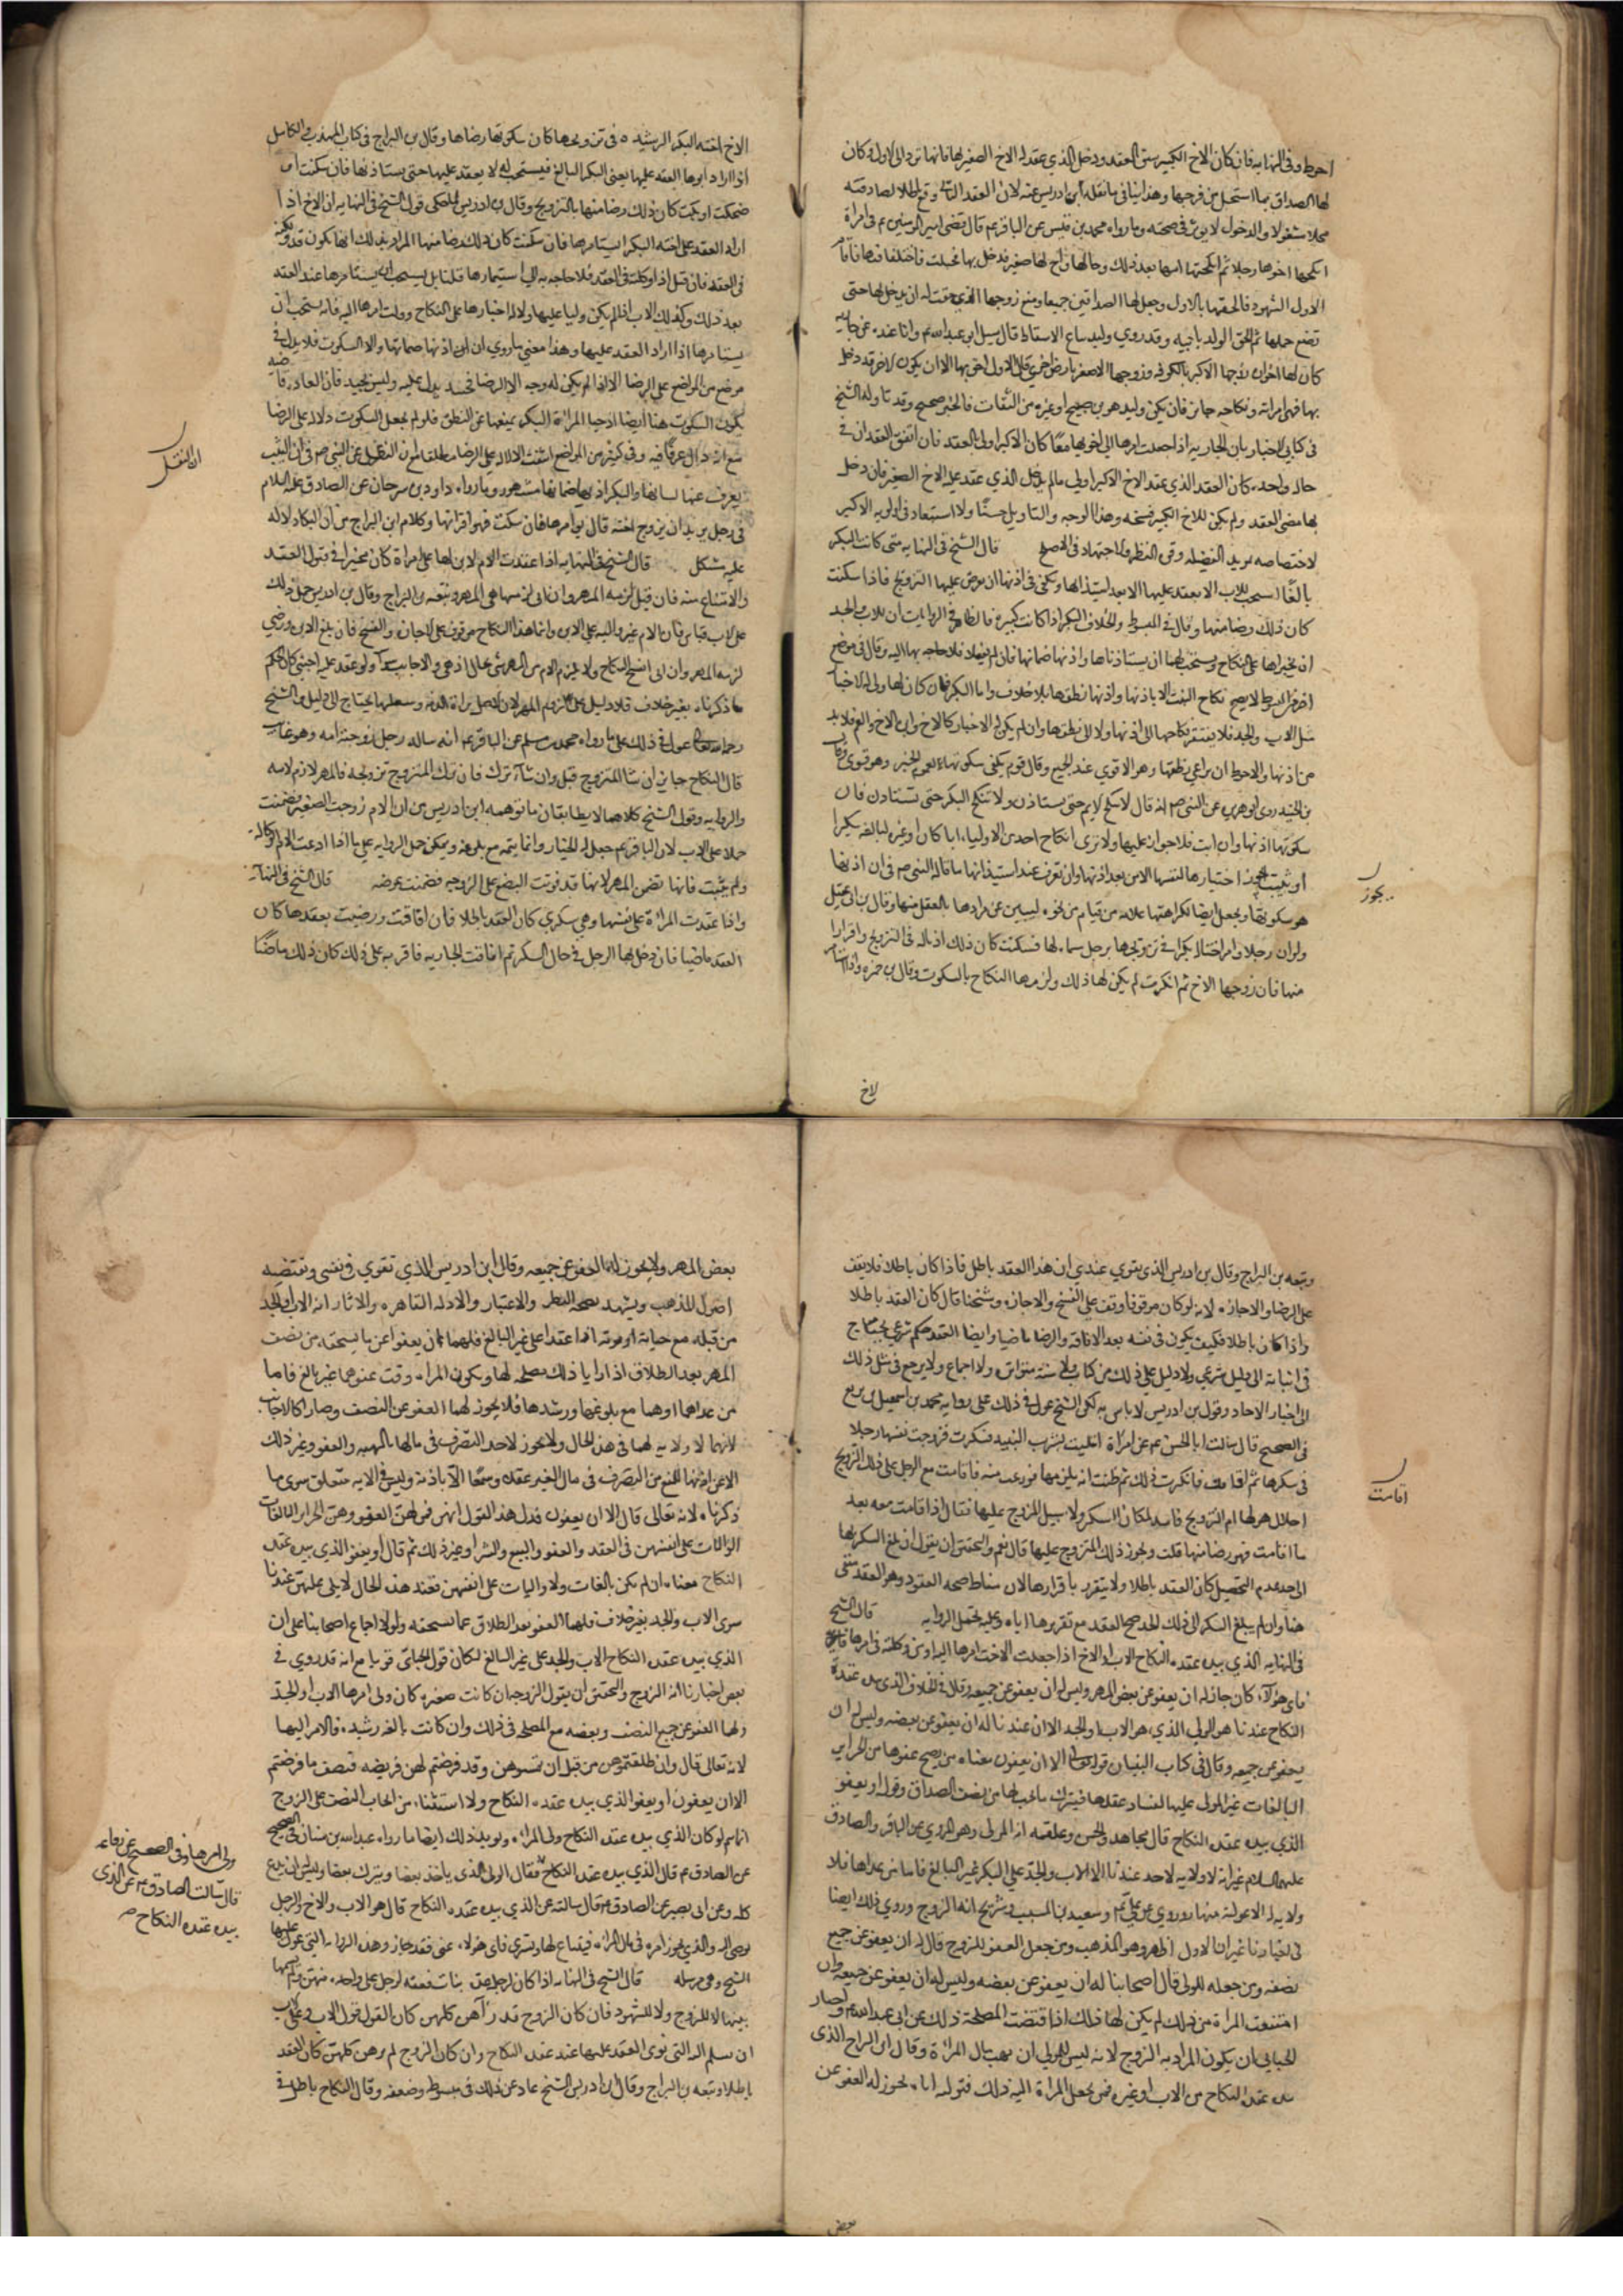 احوط وفي النهايه فان كان الاخ الكبير سبق العقد ودخل الذي عقد له الاخ الصغير بها فانها ترد الى الاول وكان
لها الصداق بما استحل من فرجها وهذا ينافي ما نقله ابن ادريس عنه لان العقد الثاني وقع باطلا لصادفته
محلا مشغولا والدخول لا يوثر في صحته وما رواه محمد بن قيس عن الباقر عم قال قضى امير المومنين عم في امراة
انكحها اخوها رجلا ثم انكحتها امها بعد ذلك رجلا وخالها او اخ لها صغير فدخل بها فحبلت فاختلفا فيها فاقام
الاول الشهود فالحقها بالاول وجعل لها الصداقين جميعا ومنع زوجها الذي حقت له ان يدخل بها حتى
تضع حملها ثم الحق الولد بابيه وقد روي وليد بياع الاسفاط قال سيل ابو عبد الله عم وانا عنده عن جاريه
كان لها اخوان زوجها الاكبر بالكوفه وزوجها الاصغر بارض اخري قال الاول احق بها الا ان يكون الاخر قد دخل
بها فهي امراته ونكاحه جايز فان يكن وليد هو بن صبيح او غيره من الثقات فالخبر صحيح وقد تاوله الشيخ
في كتابي الاخبار بان الجاريه اذا جعلت امرها الى اخويها معا كان الاكبر اولى بالعقد فان اتفق العقدان في
حاله واحده كان العقد الذي عقد الاخ الاكبر اولى ما لم يدخل الذي عقد عليه الاخ الصغير فان دخل
بها مضى العقد ولم يكن للاخ الكبير فسخه وهذا الوجه والتاويل حسنا ولا استبعاد في اولويه الاكبر
لاختصاصه بمزيد الفضيله وقوه النظر والاجتهاد في الاصلح قال الشيخ في النهايه متى كانت البكر
بالغا استحب للاب الا يعقد عليها الا بعد استيذانها ويكفي في اذنها ان يعرض عليها التزويج فاذا سكتت
كان ذلك رضا منها وقال في المبسوط والخلاف البكر اذا كانت كبيره فالظاهر في الروايات ان للاب والجد
ان يجبراها على النكاح ويستحب لهما ان يستاذناها واذنها صماتها فان لم يفعلا فلا حاجه بهما اليه وقال في موضع
اخر من المبسوط لا يصح نكاح الثيب الا باذنها واذنها نطقها بلا خلاف واما البكر فان كان لها ولي له الاجبار
مثل الاب والجد فلا يفتقر نكاحها الى اذنها ولا الى نطقها وان لم يكن له الاجبار كالاخ وابن الاخ والعم فلا بد
من اذنها والاحوط ان يراعي نطقها وهو الاقوي عند الجميع وقال قوم يكفي سكوتها لعموم الخبر وهو قوي وقال
بن الجنيد روى ابو هريره عن النبي ص انه قال لا تنكح الايم حتى تستاذن ولا تنكح البكر حتى تستاذن فان
سكوتها اذنها وان ابت فلا جواز عليها ولا نرى انكاح احد من الاولياء ابا كان او غيره لبالغه بكرا
او ثيبت اختيارها لنفسها الا من بعد اذنها وان تعرف عند استيذانها ما قاله النبي ص في ان اذنها
هو سكوتها ويجعل ايضا لكراهتها علامه من قيام من نحوه ليبين عن مرادها بالعقل منها وقال بن ابي عقيل
ولو ان رجلا وامر اختا له بكرا في تزويجها برجل سماه لها فسكتت كان ذلك اذنا له في التزويج واقرارا
منها فان زوجها الاخ ثم انكرت لم يكن لها ذلك ولزمها النكاح بالسكوت وقال بن حمزه واذا استامر
يجوز
لاخ
الاخ اخته البكر الرشيده في تزويجها كان سكوتها رضاها وقال بن البراج في كتاب المهذب والكامل
اذا اراد ابوها العقد عليها يعني البكر البالغ فيستحب له الا يعقد عليها حتى يستاذنها فان سكتت او
ضحكت او بكت كان ذلك رضا منها بالتزويج وقال بن ادريس لما حكى قول الشيخ في النهايه ان الاخ اذا
اراد العقد على اخته البكر استامرها فان سكتت كان ذلك رضا منها المراد بذلك انها تكون قد وكلته
في العقد فان قيل اذا وكلته في العقد فلا حاجه به الى استيمارها قلنا بل يستحب ان يستامرها عند العقد
بعد ذلك وكذلك الاب اذا لم يكن وليا عليها ولا له اجبارها على النكاح وولت امرها اليه فانه يستحب ان
يستامرها اذا اراد العقد عليها وهذا معنى ما روي ان اذنها صماتها والا السكوت فلا يدل في
موضع من المواضع على الرضا الا اذا لم يكن له وجه الا الرضا فحينئذ يدل عليه وليس بجيد فان العاده قاضيه
بكون السكوت هنا ايضا اذ حيا المراه البكر يمنعها عن النطق فلو لم نجعل السكوت دلاله على الرضا
مع انه دال عرفا فيه وفي كثير من المواضع انتفت الدلاله على الرضا مطلقا مع ان المنقول عن النبي ص في ان الثيب
يعرف عنها لسانها والبكر اذنها صماتها مشهور وما رواه داود بن سرحان عن الصادق عليه السلام
في رجل يريد ان يزوج اخته قال يوامرها فان سكتت فهو اقرارها وكلام ابن البراج من ان البكاء دلاله
عليه مشكل قال الشيخ في النهايه اذا عقدت الام لابن لها على امراة كان مخيرا في قبول العقد
والامتناع منه فان قبل لزمه المهر وان ابي لزمها هي المهر وتبعه بن البراج وقال بن ادريس حمل ذلك
على الاب قياس فان الام غير واليه على الابن وانما هذا النكاح موقوف على الاجازه والفسخ فان بلغ الابن ورضي
لزمه المهر وان ابي انفسخ النكاح ولا يلزم الام من المهر شي بحال اذ هي والاجانب سواء ولو عقد عليه اجنبي كان الحكم
ما ذكرناه بغير خلاف فلا دليل على لزوم المهر لان الاصل براءة الذمه وشغلها يحتاج الى دليل والشيخ
رحمه الله تعالى عول في ذلك على ما رواه محمد بن مسلم عن الباقر عم انه ساله رجل زوجته امه وهو غايب
قال النكاح جايز ان شا المتزوج قبل وان شآء ترك فان ترك المتزوج تزويجه فالمهر لازم لامه
والروايه وقول الشيخ كلاهما لا يطابقان ما توهمه ابن ادريس من ان الام زوجت الصغير فضمنت
حملا على الاب لان الباقر عم جعل له الخيار وانما يتم مع بلوغه ويمكن حمل الروايه على ما اذا ادعت الام الوكاله
ولم يثبت فانها تضمن المهر لانها قد فوتت البضع على الزوجه فضمنت عوضه قال الشيخ في النهايه
واذا عقدت المراة على نفسها وهي سكري كان العقد باطلا فان افاقت ورضيت بعقدها كان
العقد ماضيا فان دخل بها الرجل في حال السكر ثم افاقت الجاريه فاقرته على ذلك كان ذلك ماضيا
ان النقل
وتبعه بن البراج وقال بن ادريس الذي يقوي عندي ان هذا العقد باطل فاذا كان باطلا فلا يقف
على الرضا والاجازه لانه لو كان موقوفا وقف على الفسخ والاجازه وشيخنا قال كان العقد باطلا
واذا كان باطلا فكيف يكون في نفسه بعد الافاقه والرضا ماضيا وايضا العقد حكم شرعي يحتاج
في اثباته الى دليل شرعي ولا دليل على ذلك من كتاب ولا سنه متواتره ولا اجماع ولا يرجع في مثل ذلك
الى اخبار الاحاد وقول بن ادريس لا باس به لكن الشيخ عول في ذلك على روايه محمد بن اسمعيل بن بزيع
في الصحيح قال سالت ابا الحسن عم عن امراة ابتليت بشرب النبيذ فسكرت فزوجت نفسها رجلا
في سكرها ثم افاقت فانكرت ذلك ثم ظنت انه يلزمها فورعت منه فاقامت مع الرجل على ذلك التزويج
احلال هو لها ام التزويج فاسد لمكان السكر ولا سبيل للزوج عليها فقال اذا اقامت معه بعد
ما افاقت فهو رضا منها قلت ويجوز ذلك التزويج عليها قال نعم والتحقيق ان نقول ان بلغ السكر بها
الى حد عدم التحصيل كان العقد باطلا ولا يتقرر باقرارها لان مناط صحه العقود وهو العقد منتفي
هنا وان لم يبلغ السكر الى ذلك الحد صح العقد مع تقريرها اياه وعليه تحمل الروايه قال الشيخ
في النهايه الذي بيده عقده النكاح الاب او الاخ اذا جعلت الاخت امرها اليه او من وكلته في امرها
فاي هولآء كان جاز له ان يعفو عن بعض المهر وليس له ان يعفو عن جميعه وقال في الخلاف الذي بيده عقدة
النكاح عندنا هو الولي الذي هو الاب او الجد الا ان عندنا له ان يعفو عن بعضه وليس له ان
يعفو عن جميعه وقال في كتاب التبيان قوله تعالى الا ان يعفون معناه من يصح عفوها من الحراير
البالغات غير المولى عليها لفساد عقلها فيترك ما يجب لها من نصف الصداق وقوله او يعفو
الذي بيده عقده النكاح قال مجاهد والحسن وعلقمه انه الولي وهو المروي عن الباقر والصادق
عليهما السلام غير انه لا ولايه لاحد عندنا الا الاب والجد على البكر غير البالغ فاما من عداهما فلا
ولايه له الا بتوليه منها وروي عن علي عم وسعيد بن المسيب وشريح انه الزوج وروي ذلك ايضا
في اخبارنا غير ان الاول اظهر وهو المذهب ومن جعل العفو للزوج قال له ان يعفو عن جميع
نصفه ومن جعله للولي قال اصحابنا له ان يعفو عن بعضه وليس له ان يعفو عن جميعه وان
امتنعت المراة من ذلك لم يكن لها ذلك اذا اقتضت المصلحة ذلك عن ابي عبد الله عم واختار
الجبايي ان يكون المراد به الزوج لانه ليس للولي ان يهب مال المراة وقال ابن البراج الذي
بيده عقده النكاح من الاب او غيره ممن تجعل المراة اليه ذلك فتوليه اياه يجوز له العفو عن
اقامت
بعض
بعض المهر ولا يجوز له العفو عن جميعه وقال ابن ادريس الذي تقوي في نفسي وتقتضيه
اصول المذهب ويشهد بصحته النظر والاعتبار والادله القاهره والاثار انه الاب او الجد
من قبله مع حياته او موته اذا عقدا على غير البالغ فلهما ان يعفوا عن ما يستحقه من نصف
المهر بعد الطلاق اذا رايا ذلك مصلحه لها ويكون المراه وقت عفوهما غير بالغ فاما
من عداهما او هما مع بلوغها ورشدها فلا يجوز لهما العفو عن النصف وصارا كالاجانب
لانهما لا ولايه لهما في هذه الحال ولا يجوز لاحد التصرف في مالها بالهبه والعفو وغير ذلك
الا عن اذنها للمنع من التصرف في مال الغير عقلا وسمعا الا باذنه وليس في الايه متعلق سوى ما
ذكرناه لانه تعالى قال الا ان يعفون فدل هذا القول انهن ممن لهن العفو وهن الحراير البالغات
الواليات على انفسهن في العقد والعفو والبيع والشرا وغير ذلك ثم قال او يعفو الذي بيده عقده
النكاح معناه ان لم يكن بالغات ولا واليات على انفسهن فعند هذه الحال لا يلي عليهن عندنا
سوى الاب والجد بغير خلاف فلهما العفو بعد الطلاق عما تستحقه ولولا اجماع اصحابنا على ان
الذي بيده عقده النكاح الاب والجد على غير البالغ لكان قول الجبائي قويا مع انه قد روي في
بعض اخبارنا انه الزوج والتحقيق ان نقول الزوجه ان كانت صغيره كان ولي امرها الاب او الجد
ولهما العفو عن جميع النصف وبعضه مع المصلحه في ذلك وان كانت بالغه رشيده فالامر اليها
لانه تعالى قال وان طلقتموهن من قبل ان تمسوهن وقد فرضتم لهن فريضه فنصف ما فرضتم
الا ان يعفون او يعفو الذي بيده عقده النكاح ولا استثناء من ايجاب النصف على الزوج
انما يتم لو كان الذي بيده عقده النكاح ولي المراه ويويد ذلك ايضا ما رواه عبد الله بن سنان في الصحيح
عن الصادق عم قال الذي بيده عقد النكاح فقال الولي الذي ياخذ بعضا ويترك بعضا وليس له ان يدع
كله وعن ابي بصير عن الصادق عم قال سالته عن الذي بيده عقده النكاح قال هو الاب والاخ والرجل
يوصى اليه والذي يجوز امره في مال المراه فيبتاع لها ويشتري فاي هولاء عفى فقد جاز وهذه الروايه التي عول عليها
الشيخ وهي مرسله قال الشيخ في النهايه اذا كان لرجل عده بنات فعقد لرجل على واحده منهن ولم يسمها
بعينها لا للزوج ولا للشهود فان كان الزوج قد رآهن كلهن كان القول قول الاب وعلى الاب
ان يسلم اليه التي نوى العقد عليها عند عقد النكاح وان كان الزوج لم يرهن كلهن كان العقد
باطلا وتبعه بن البراج وقال بن ادريس الشيخ عاد عن ذلك في مبسوطه وضعفه وقال النكاح باطل في
ولي امرها وفي الصحيح عن رفاعه
قال سالت الصادق عم عن الذي
بيده عقده النكاح